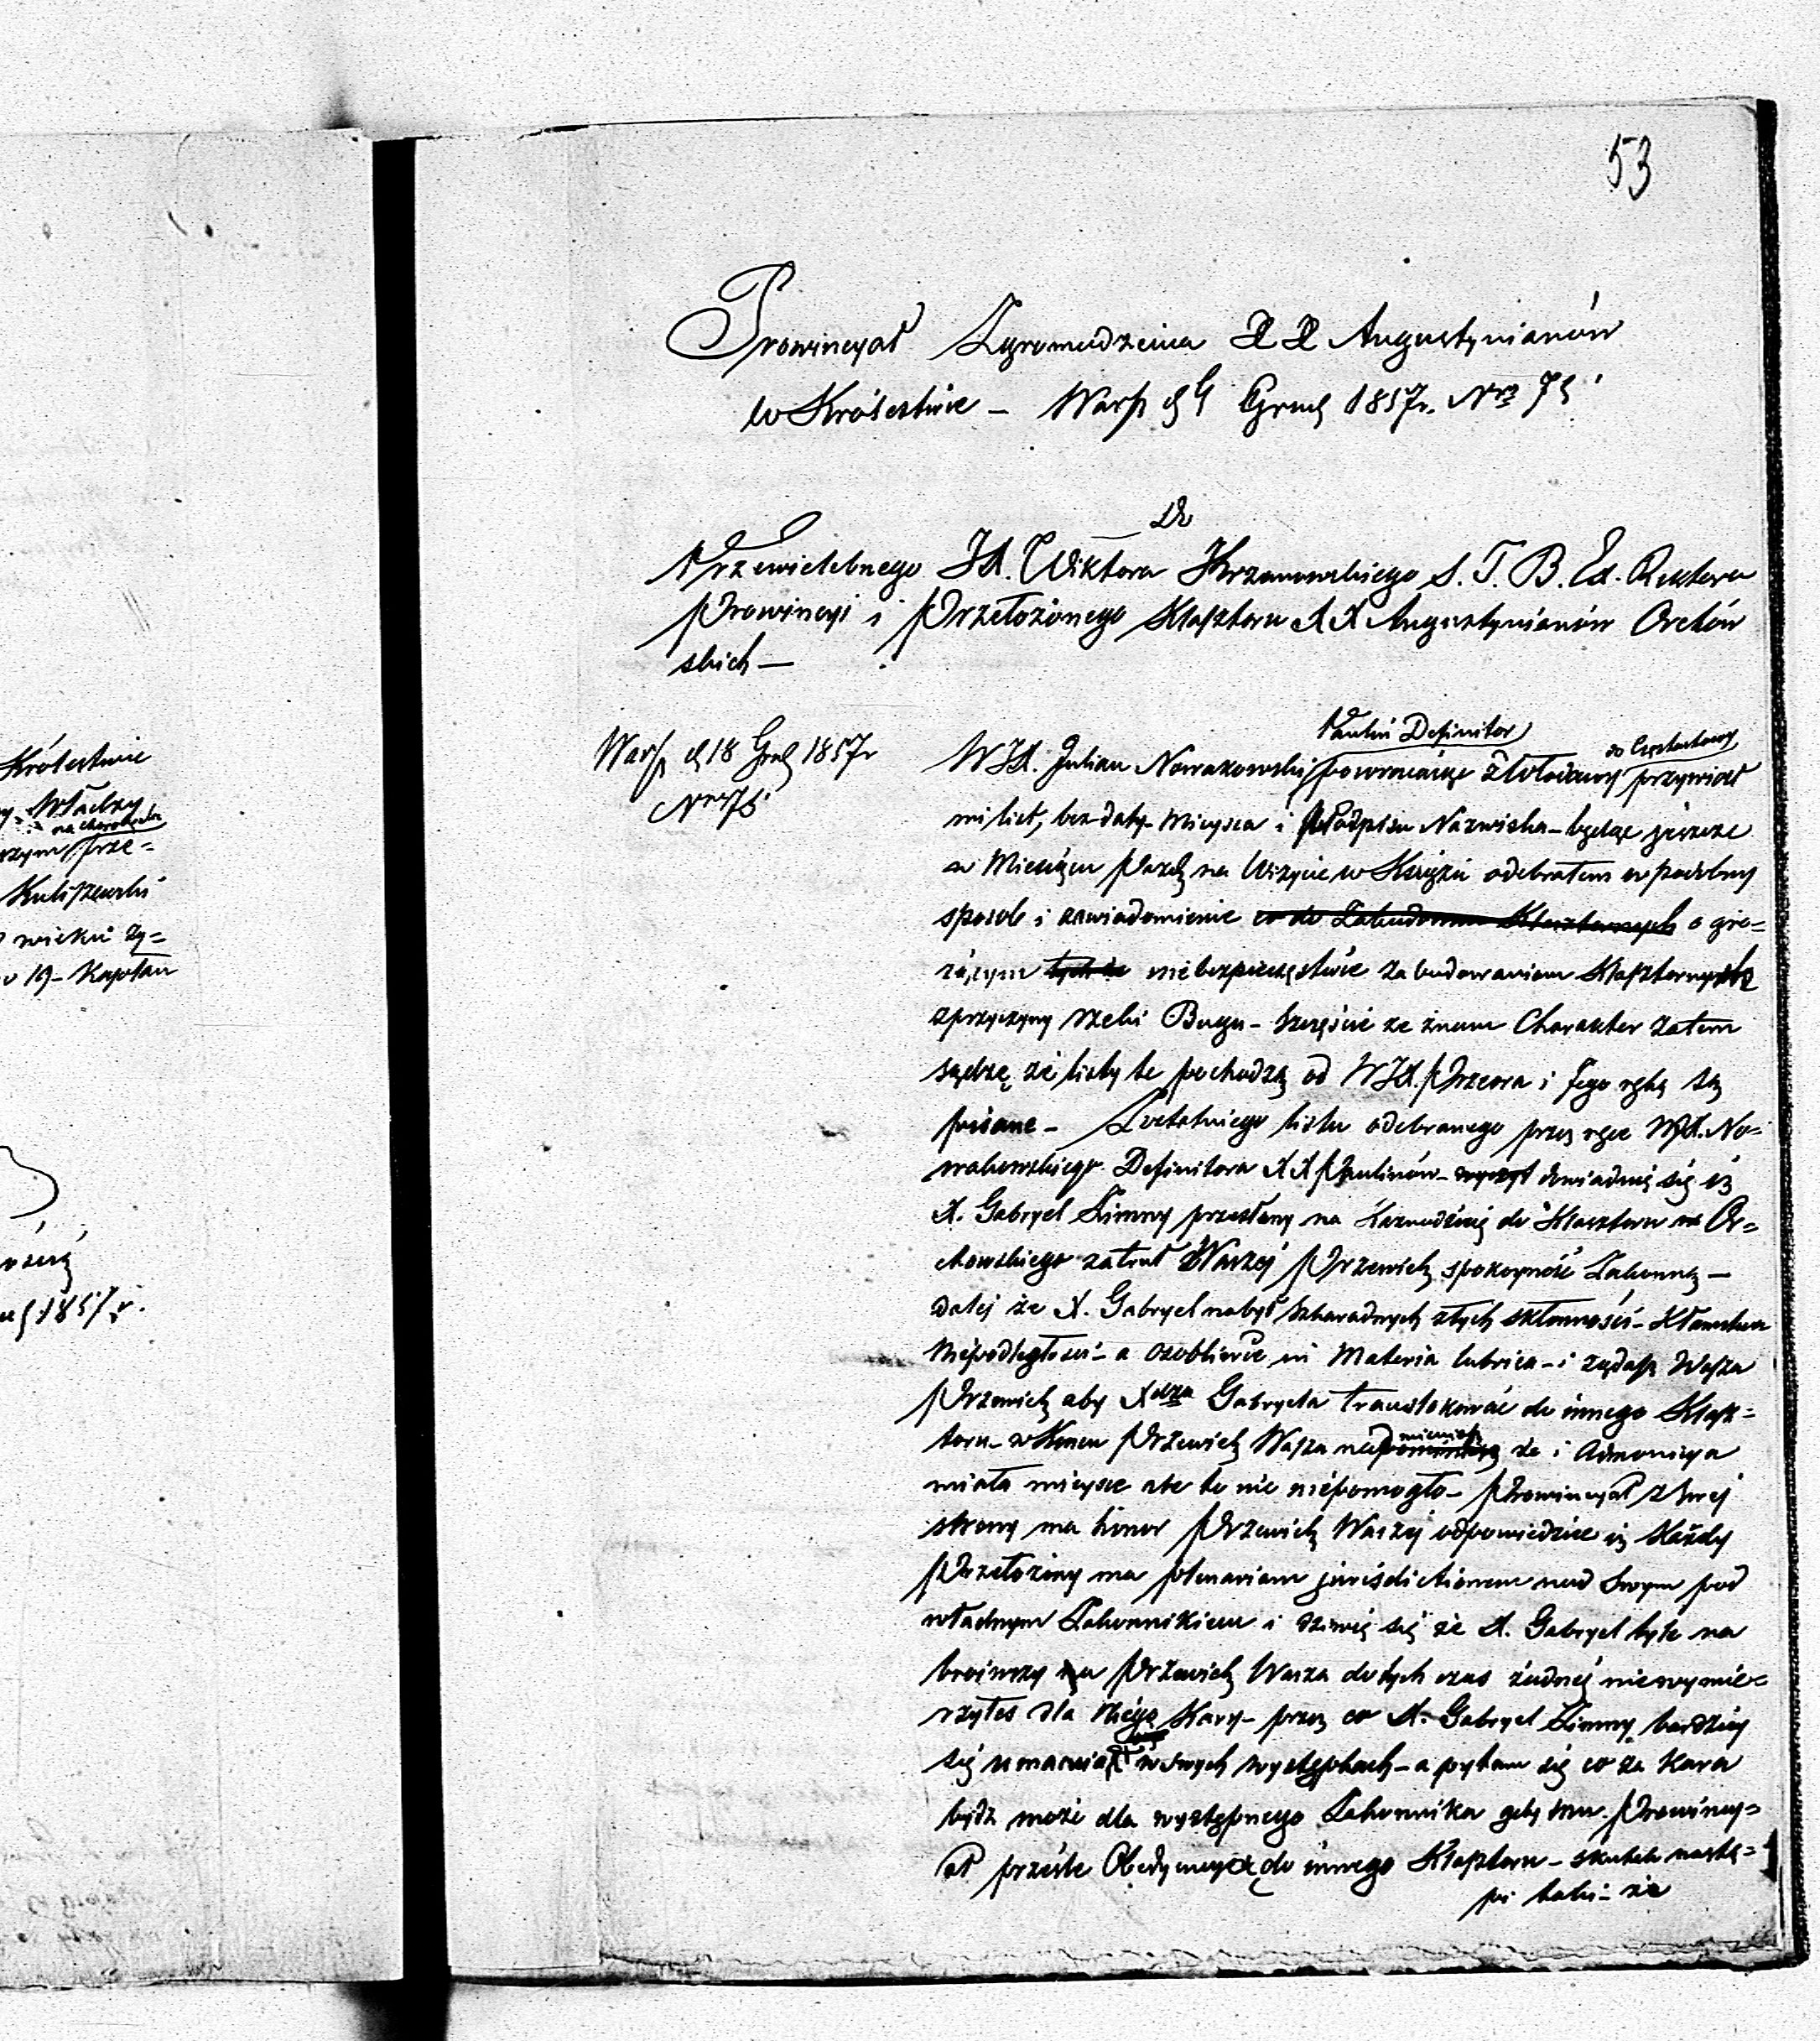 53
Prowincyał Zgromadzenia XX Augustynianów
w Królestwie – Warsz d Grud 1857r. Nro 75
Do
Przewielebnego JX. Wiktora Krzanowskiego S. T. B. Ex. Rektora
Prowincyi i Przełożonego Klasztoru XX Augustynianów Orchów
skich –
Warsz d 18 Grud 1857r
Nro 75
Paulin Definitor
do Częstochowy
WJX. Julian Nowakowski powracając z Włodawy przywiózł
mi list, bez daty Mieysca i Podpisu Nazwiska – będąc jeszcze
w Miesiącu Paźdz na Wizycie w Książu odebrałem w podobny
sposób i zawiadomienie co do Zabudowań Klasztornych o gro=
żącym tych że niebezpieczeństwie zabudowaniom Klasztornych
z przyczyny rzeki Bugu – Szczęście ze znam Charakter zatem
sądzę że listy te pochodzą od WJX. Przeora i Jego ręką są
pisane – Z ostatniego listu odebranego przez ręce WJX. No=
wakowskiego Definitora XX Paulinów – dowiaduię się iż
X. Gabryel Zimny przesłany na Kaznodzieię do Klasztoru Or=
chowskiego zatruł Waszej Przewiel spokoyność Zakonną –
dalej że X. Gabryel nabył szkaradnych złych skłonności – Kłamstwa
Niepodległości – a osobliwie in Materia lubrica – i żądasz Wasza
Przewiel aby Xdza Gabryela translokować do innego Klasz=
toru – w Końcu Przewiel Wasza nadmieniasz że i Admonicya
miała mieysce ale to nic niepomogło – Prowincyał z swej
strony ma honor Przewiel Waszej odpowiedzieć iż Każdy
Przełożony ma plenariam jurisdictionem nad swym pod
władnym Zakonnikiem i dziwię się że X. Gabryel tyle na
broiwszy a Przewiel Wasza do tych czas żadnej niewymie=
rzyłeś dla Niego Kary – przez co X. Gabryel Zimny bardziey
się umacniał w swych występkach – a pytam się co za Kara
bydz może dla występnego Zakonnika gdy mu Prowincy=
ał prześle Obedyencyę do innego Klasztoru – skutek nastę=
pi taki – że
Królestwie
Władzy
prze=
Kuliszewski
wieku Ży=
19 – Kapłan
1857 r.